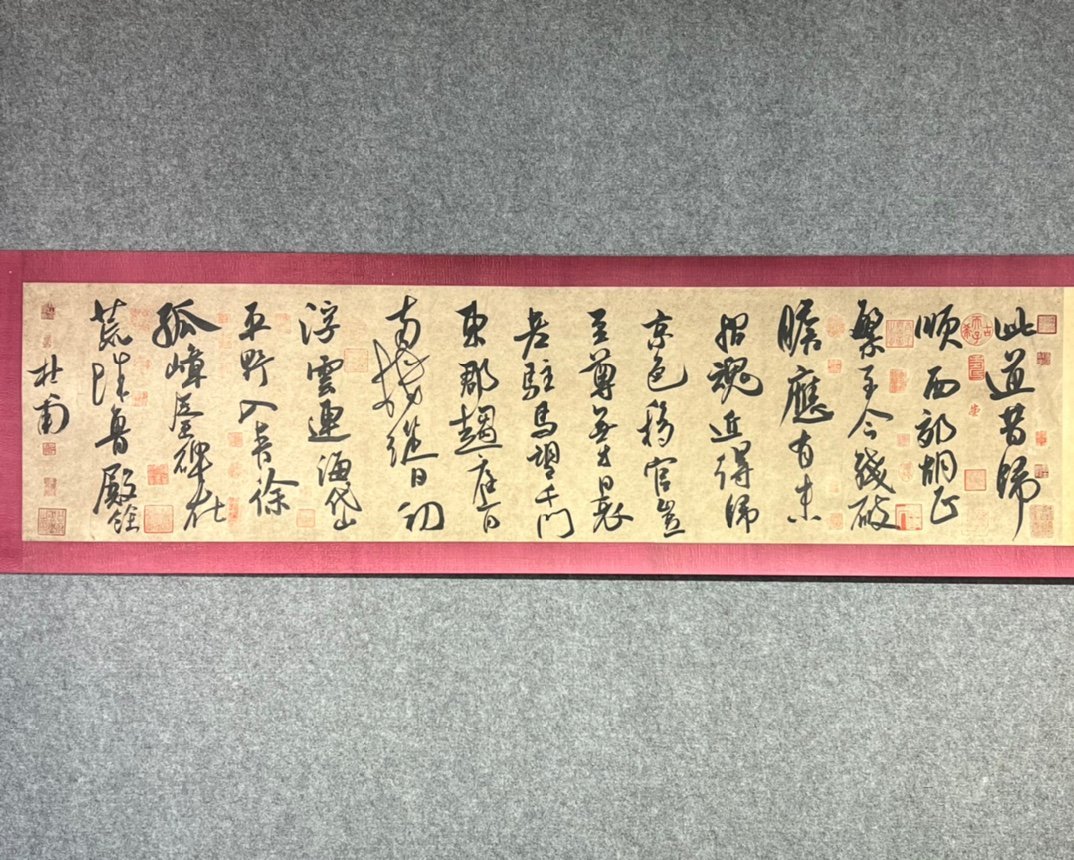 此道昔歸
順西郊胡正
繁至今殘破
膽應有未
招魂近得歸
京邑移官豈
至尊無才日衰
老駐馬望千門
東郡趨庭日
南樓縱目初
浮雲連海岱
平野入青徐
孤嶂秦碑在
荒城魯殿餘
杜甫